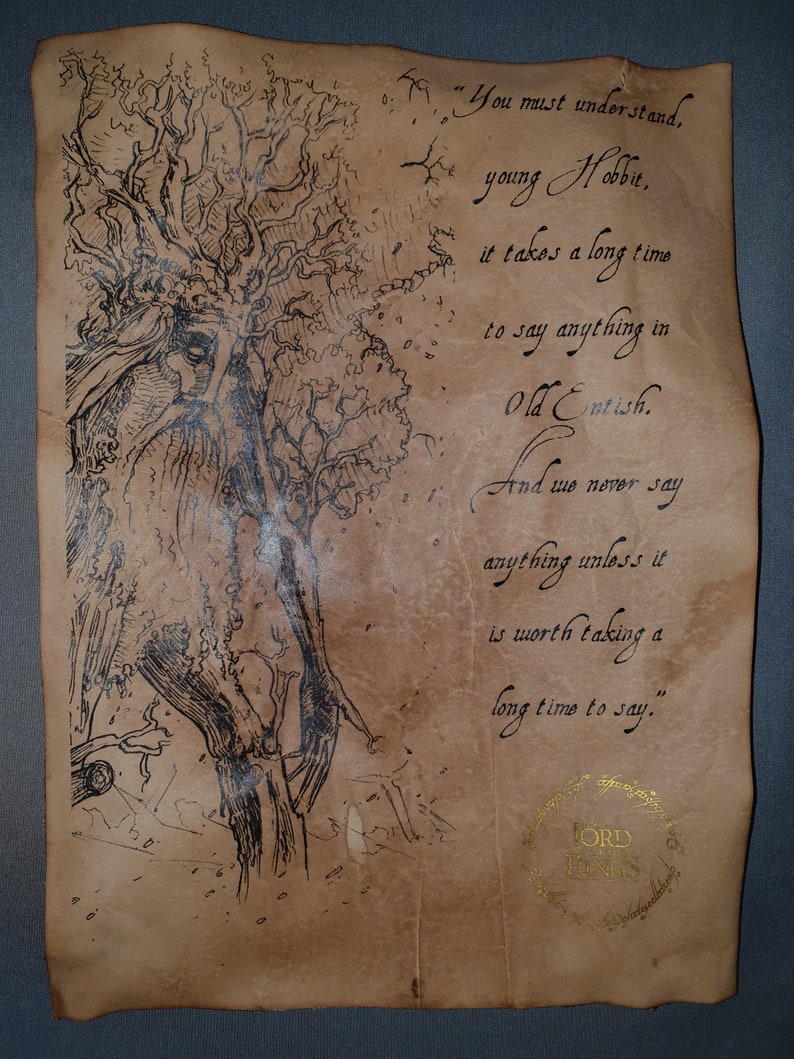 "You must understand,
young Hobbit,
it takes a long time
to say anything in
Old Entish.
And we never say
anything unless it
is worth taking a
long time to say."
THE
LORD
OF THE
RINGS